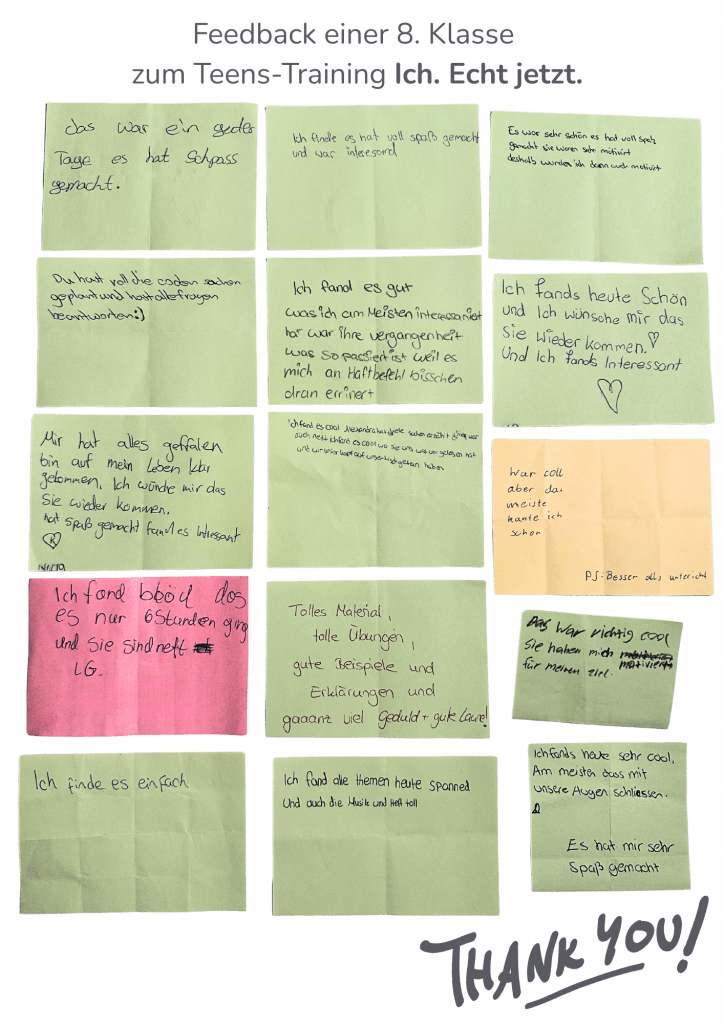 Feedback einer 8. Klasse
zum Teens-Training Ich. Echt jetzt.
das war ein
Tage es hat Schpass
gemacht.
Ich finde es hat voll spaß gemacht
und war interesond
Es war sehr schön es hat voll spaß
gemacht sie waren sehr motiviert
deshalb wurden ich dann auch motivirt
Du hast voll die coolen sachen
geplant und hast alle fragen
beantworden:)
Ich fand es gut
was ich am Meisten interessaniert
hat war ihre vergangenheit
was so passiert ist weil es
mich an Haftbefehl bisschen
dran errinert
Ich fands heute Schön
und Ich wünsche mir das
Sie wieder kommen.
Und Ich fands Interessant
Mir hat alles geffalen
bin auf mein Leben klar
gekommen. Ich wünche mir das
Sie wieder kommen.
hat Spaß gemacht fand es Interessant
Ich fand es cool Alexandra hat viele sachen erzählt war
auch nett ich fand es cool wo sie uns was vor gelesen hat
und wir unser kopf auf unser tisch getan haben
War coll
aber das
meiste
kante ich
schon
PS: Besser alls unterricht
Ich fand blöd das
es nur 6 Stunden ging
und Sie sind nett
LG.
Tolles Material,
tolle Übungen,
gute Beispiele und
Erklärungen und
gaaanz viel Geduld + gute Laune!
Das war richtig cool
Sie haben mich
für meinen ziel. motiviert
Ich finde es einfach
Ich fand alle themen heute spanned
Und auch die Musik und Heft toll
Ich fands heute sehr cool.
Am meisten dass mit
unsere Augen schliessen.
Es hat mir sehr
Spaß gemacht
THANK YOU!